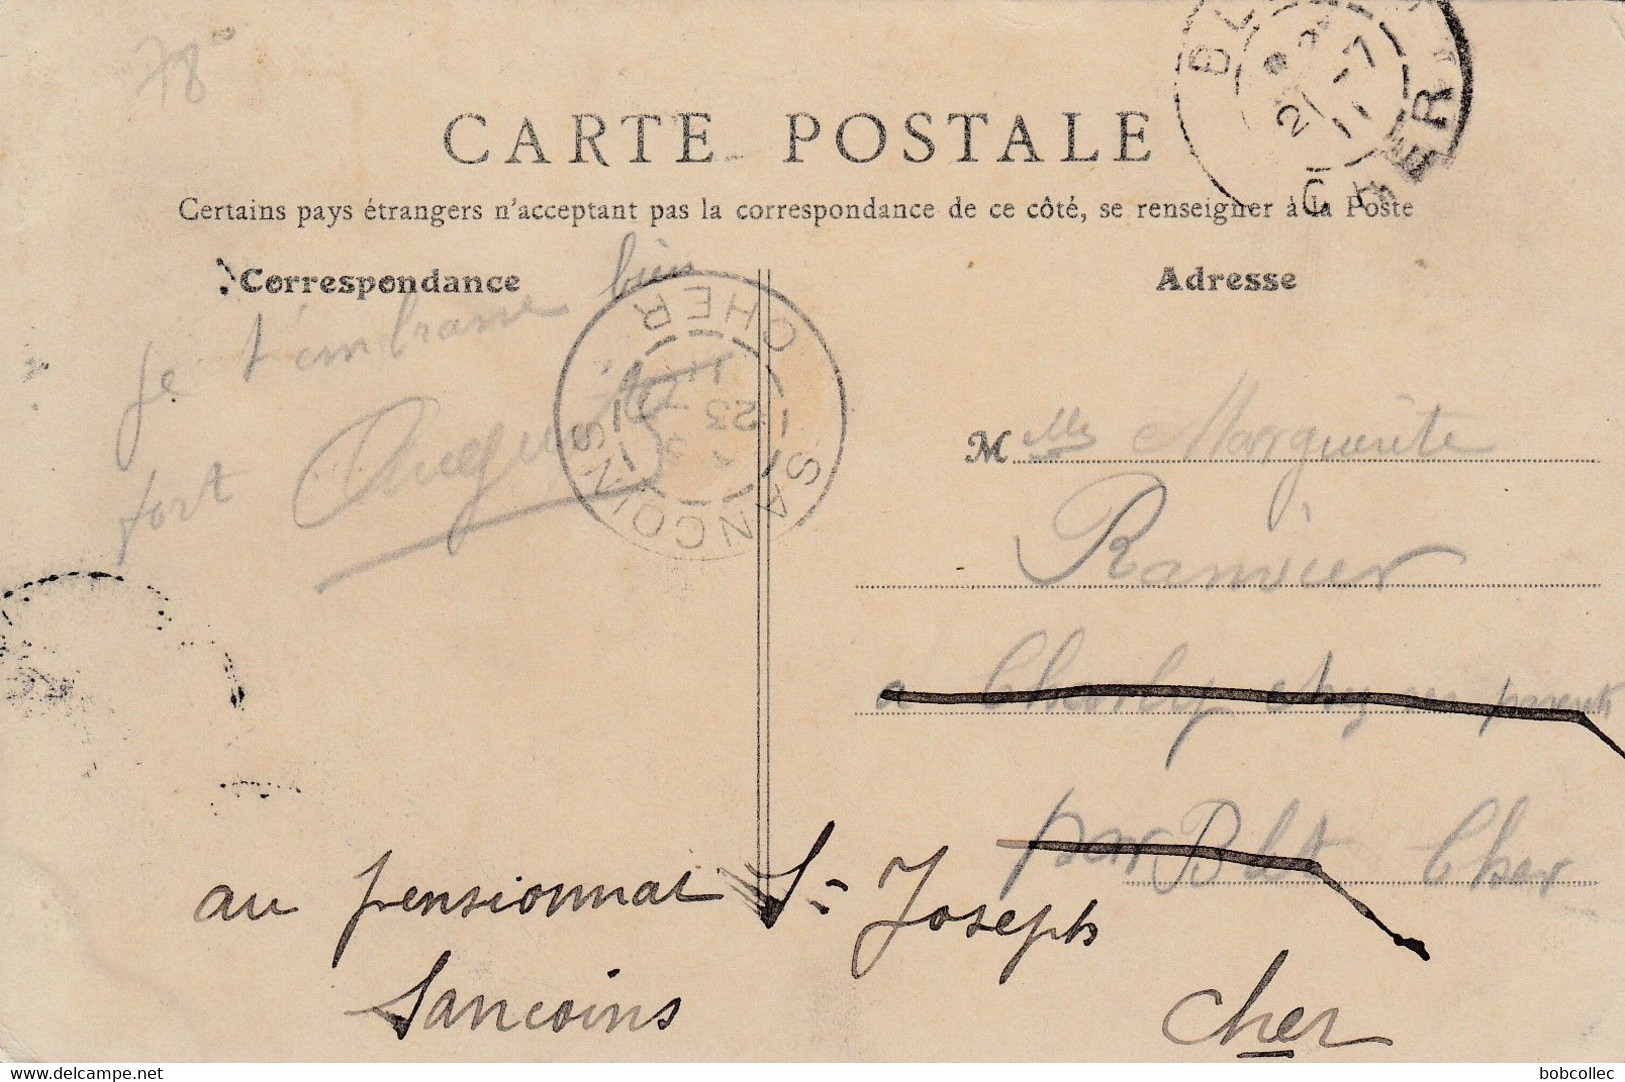 78
CARTE POSTALE
Certains pays étrangers n'acceptant pas la correspondance de ce côté, se renseigner à la Poste
Correspondance
Adresse
CHER
21 -7
11
Je t'embrasse bien
fort Auguste
SANCOINS
CHER
23
11
Mlle Marguerite
Ranvier
a Charly chez ses parents
par Blet Cher
au pensionnat St Joseph
Sancoins
Cher
www.delcampe.net
bobcollec